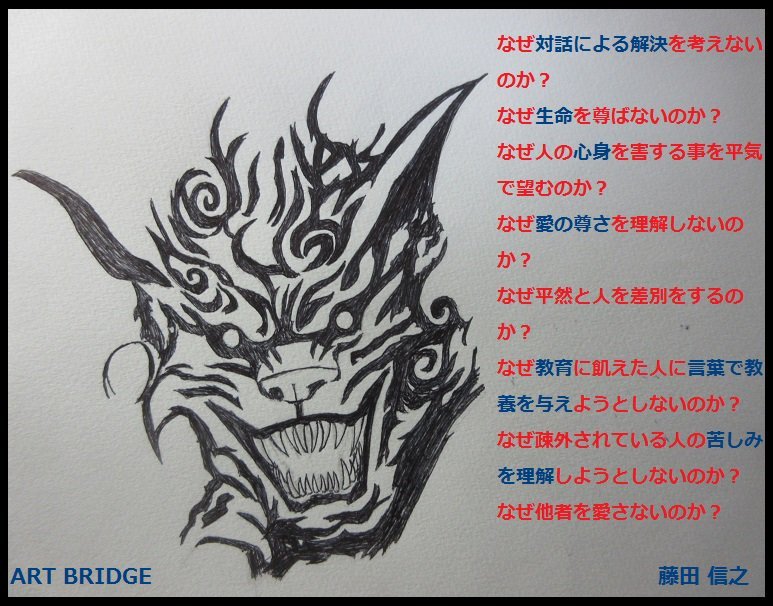 なぜ対話による解決を考えない
のか？
なぜ生命を尊ばないのか？
なぜ人の心身を害する事を平気
で望むのか？
なぜ愛の尊さを理解しないの
か？
なぜ平然と人を差別をするの
か？
なぜ教育に飢えた人に言葉で教
養を与えようとしないのか？
なぜ疎外されている人の苦しみ
を理解しようとしないのか？
なぜ他者を愛さないのか？
ART BRIDGE
藤田 信之